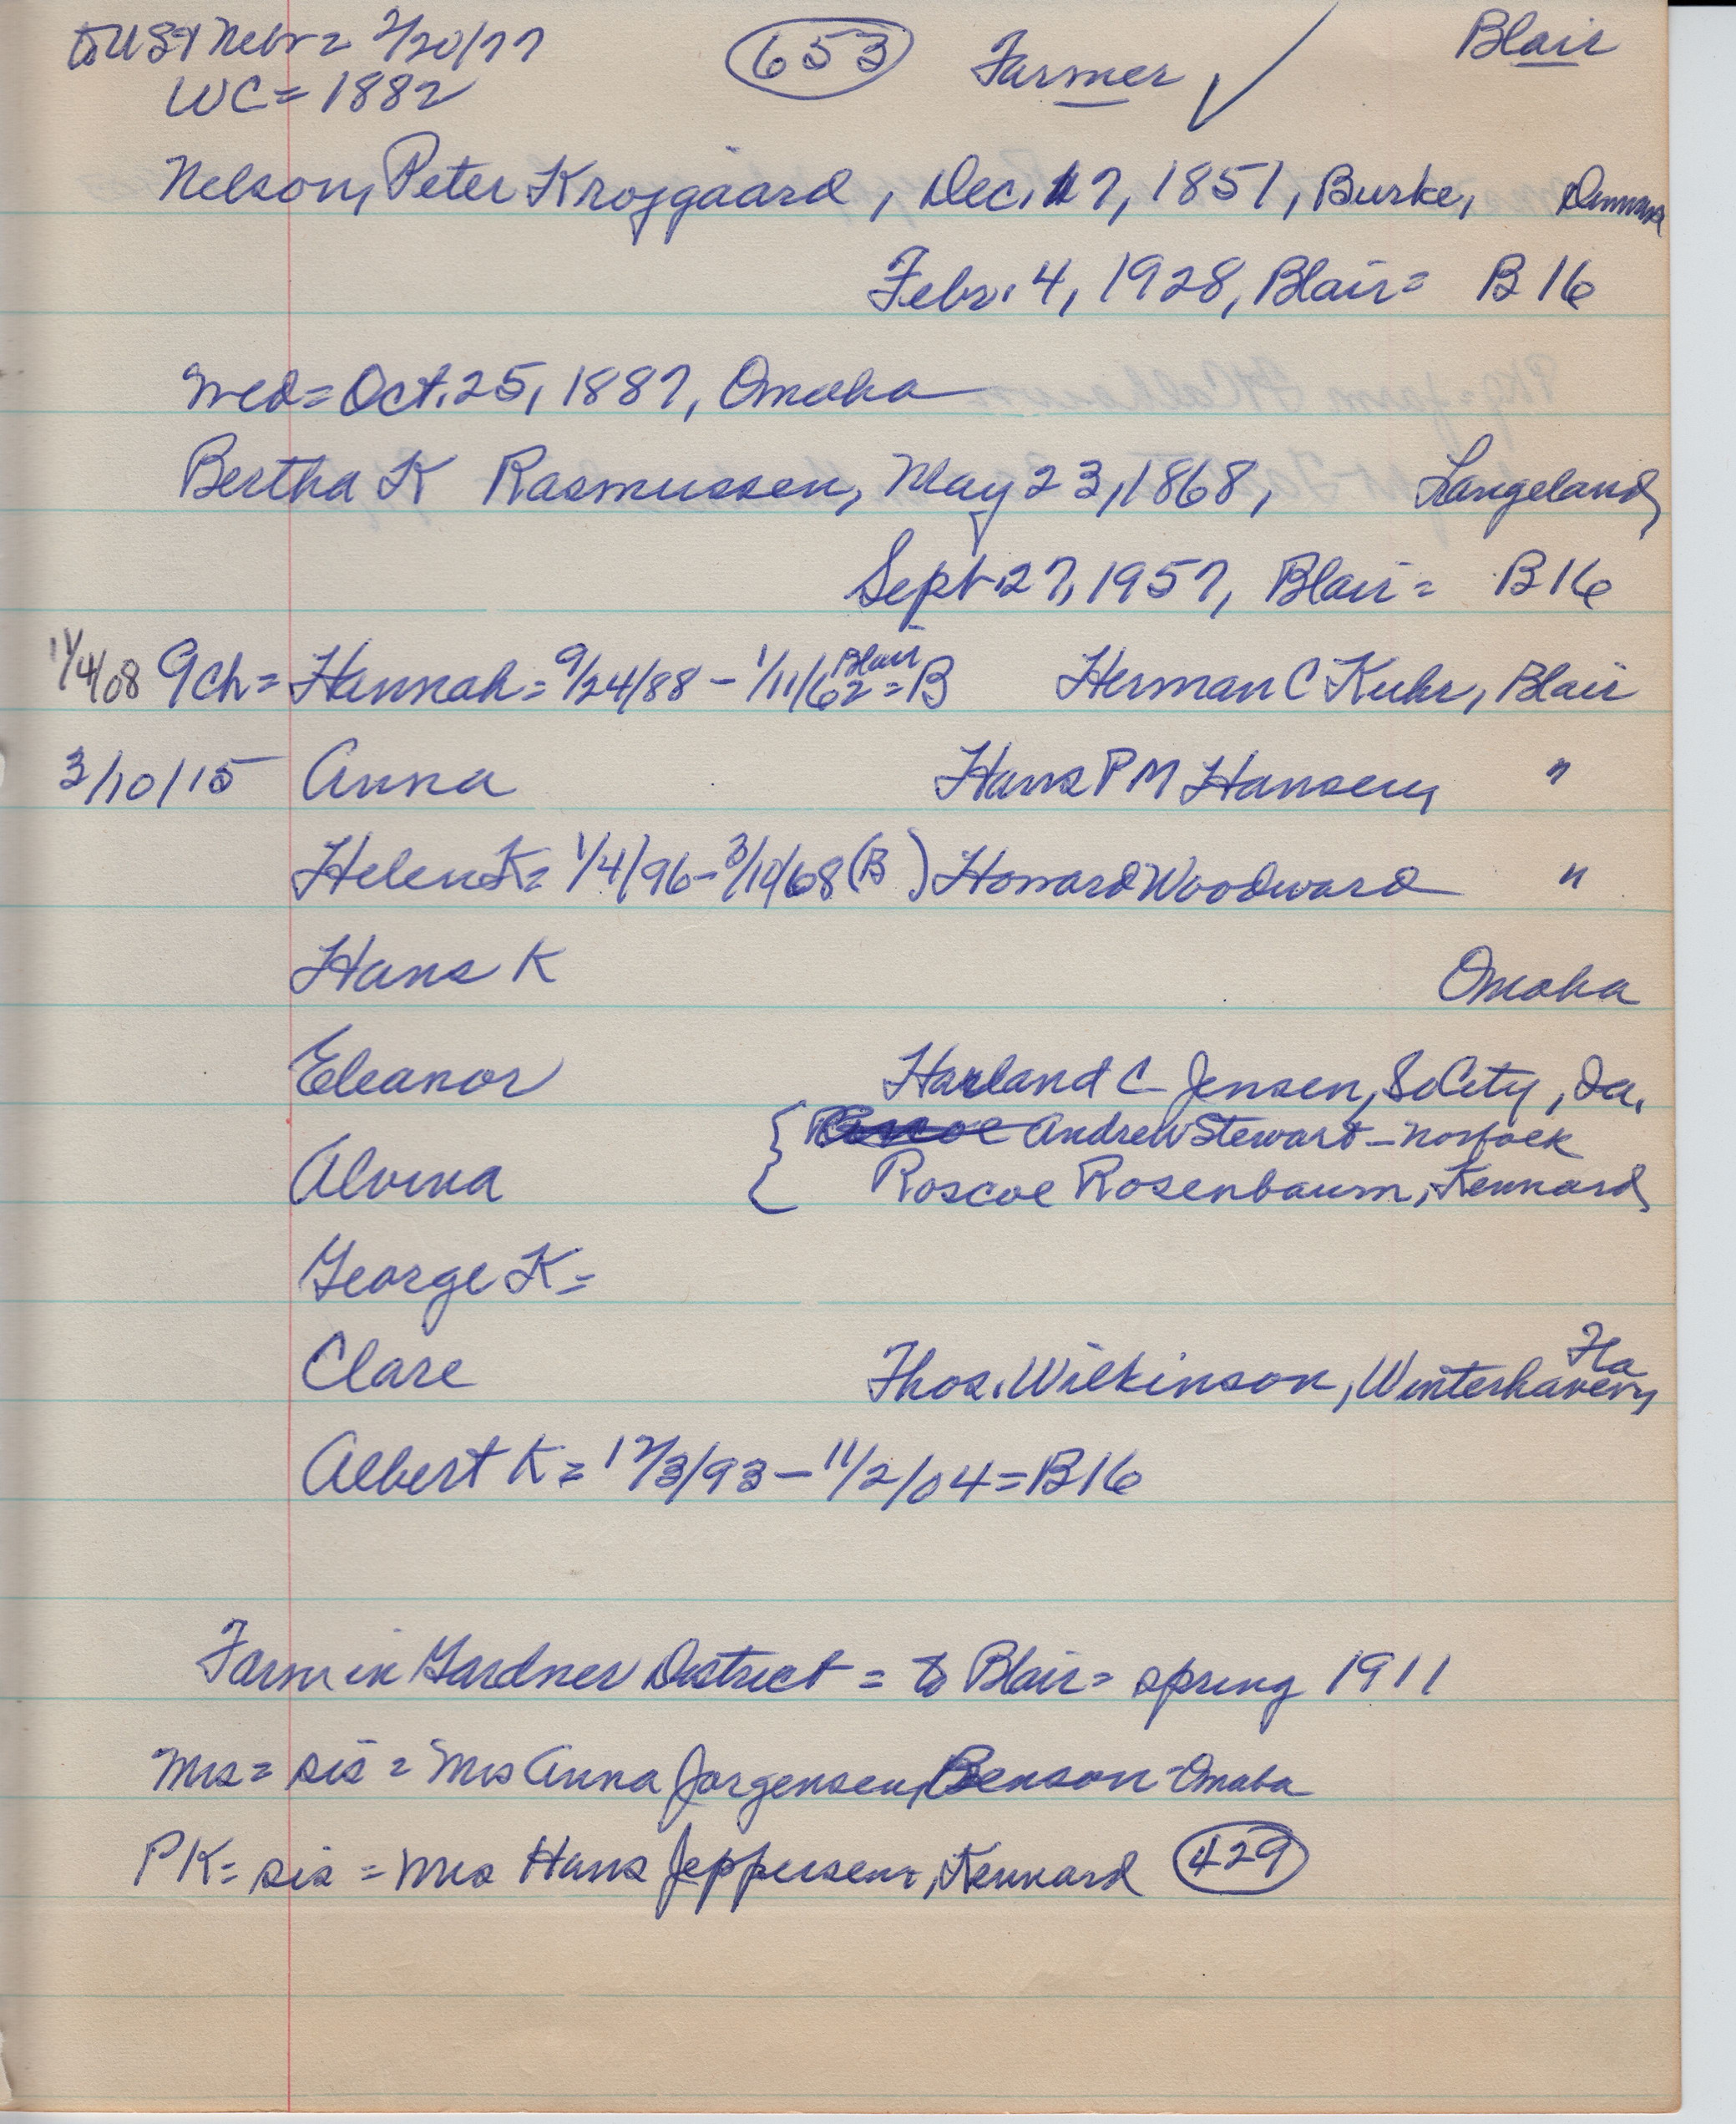 to US & Nebr = 2/20/77 (653) Farmer ✓ Blair
WC = 1882
Nelson, Peter Kroggaard, Dec. 17, 1851, Burke, Denmark
Febr. 4, 1928, Blair = B 16
Wed = Oct. 25, 1887, Omaha
Bertha K Rasmussen, May 23, 1868, Langeland,
Sept. 27, 1957, Blair = B 16
11/4/08 9ch = Hannah = 9/24/88 - 1/11/62 = Blair B Herman C Kuhr, Blair
3/10/15 Anna Hans P M Hansen, "
Helen K = 1/4/96 - 3/10/68 (B ) Howard Woodward "
Hans K Omaha
Eleanor Harland C Jensen, S City, Ia.
{ Roscoe Andrew Stewart - Norfolk
Alvina Roscoe Rosenbaum, Kennard,
George K =
Clare Thos. Wilkinson, Winterhaven, Fla
Albert K = 12/3/93 - 11/2/04 = B 16
Farm in Gardner District = to Blair = spring 1911
Mrs = sis = Mrs Anna Jorgensen, Benson - Omaha
PK = sis = Mrs Hans Jeppesen, Kennard (429)